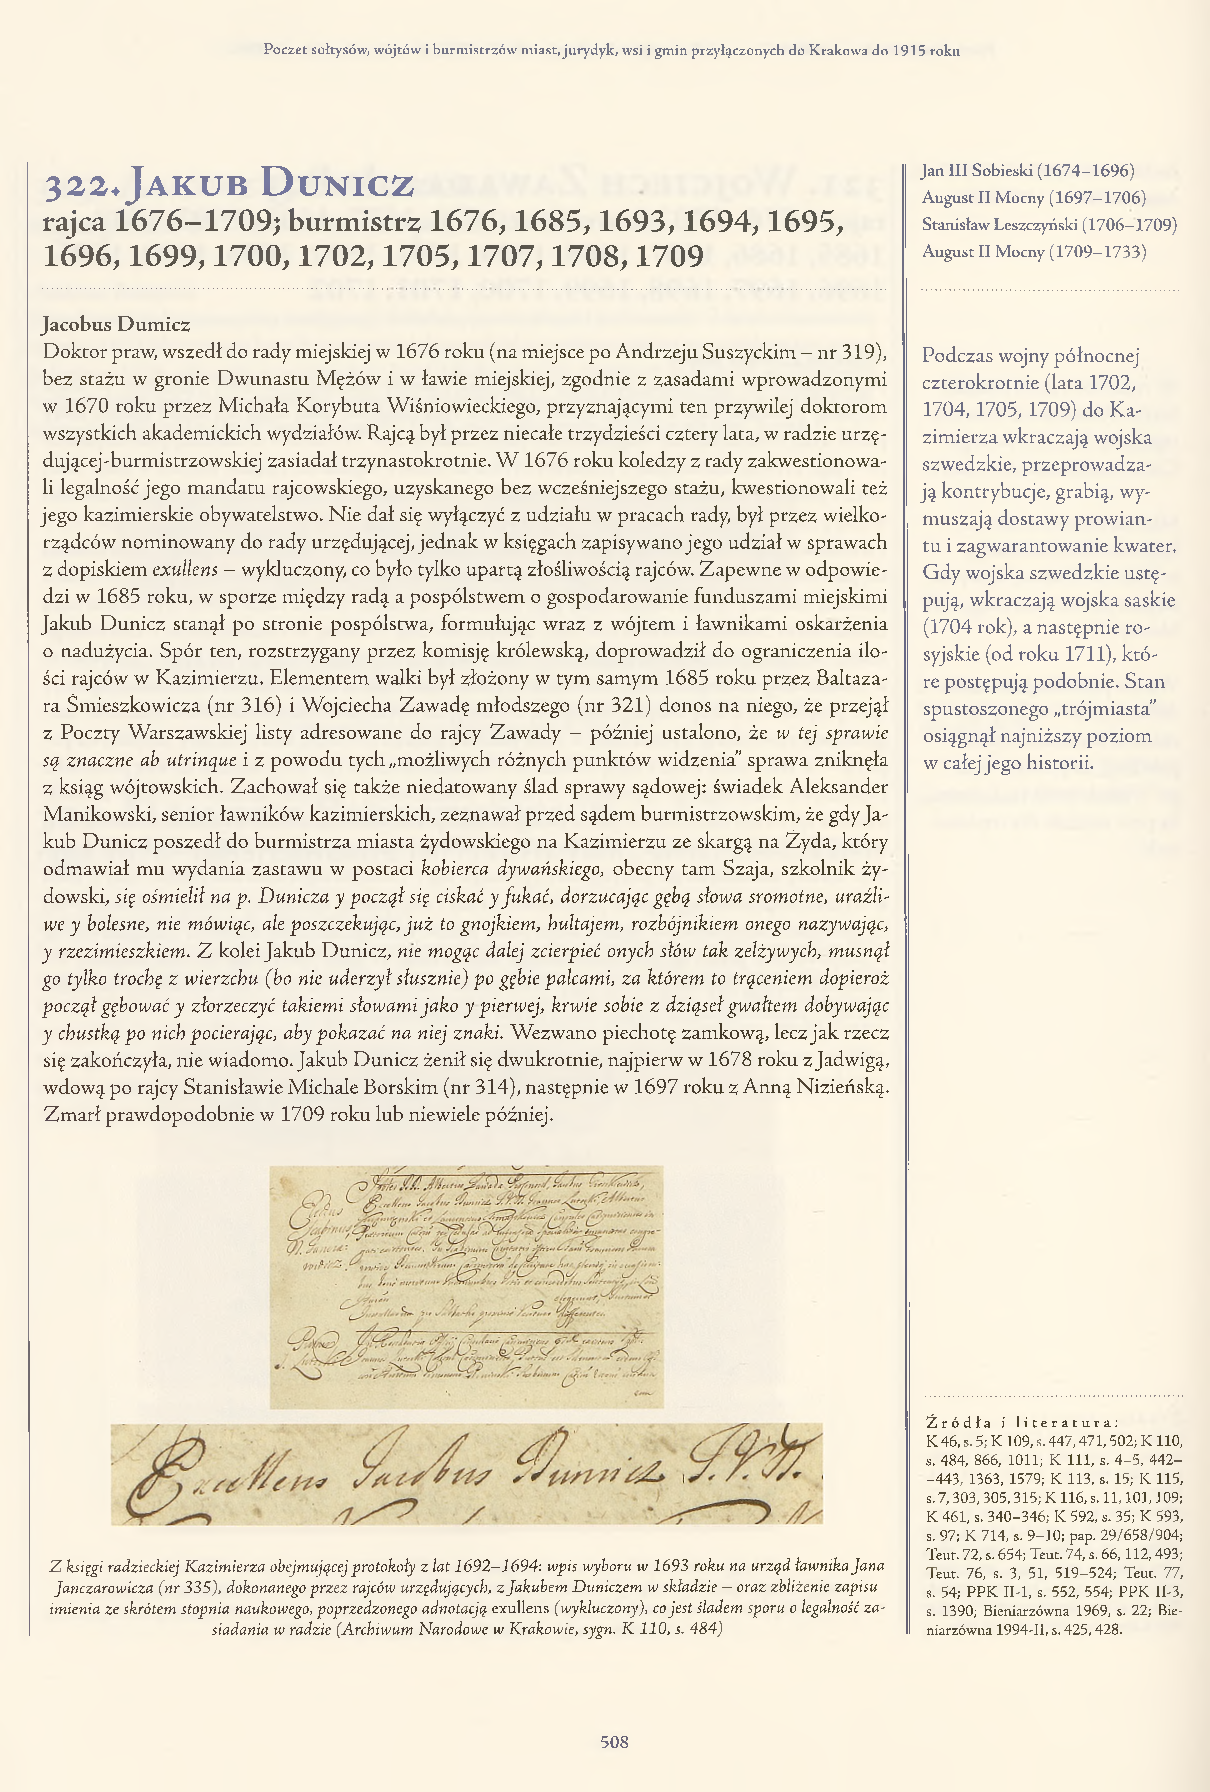 Poczet sołtysów, wójtów i burmistrzów miast, jurydyk, wsi i gmin przyłączonych do Krakowa do 1915 roku
322. Jakub Dunicz
rajca 1676–1709; burmistrz 1676, 1685, 1693, 1694, 1695,
1696, 1699, 1700, 1702, 1705, 1707, 1708, 1709
Jacobus Dumicz
Doktor praw, wszedł do rady miejskiej w 1676 roku (na miejsce po Andrzeju Suszyckim – nr 319),
bez stażu w gronie Dwunastu Mężów i w ławie miejskiej, zgodnie z zasadami wprowadzonymi
w 1670 roku przez Michała Korybuta Wiśniowieckiego, przyznającymi ten przywilej doktorom
wszystkich akademickich wydziałów. Rajcą był przez niecałe trzydzieści cztery lata, w radzie urzę-
dującej-burmistrzowskiej zasiadał trzynastokrotnie. W 1676 roku koledzy z rady zakwestionowa-
li legalność jego mandatu rajcowskiego, uzyskanego bez wcześniejszego stażu, kwestionowali też
jego kazimierskie obywatelstwo. Nie dał się wyłączyć z udziału w pracach rady, był przez wielko-
rządców nominowany do rady urzędującej, jednak w księgach zapisywano jego udział w sprawach
z dopiskiem exullens – wykluczony, co było tylko upartą złośliwością rajców. Zapewne w odpowie-
dzi w 1685 roku, w sporze między radą a pospólstwem o gospodarowanie funduszami miejskimi
Jakub Dunicz stanął po stronie pospólstwa, formułując wraz z wójtem i ławnikami oskarżenia
o nadużycia. Spór ten, rozstrzygany przez komisję królewską, doprowadził do ograniczenia ilo-
ści rajców w Kazimierzu. Elementem walki był złożony w tym samym 1685 roku przez Baltaza-
ra Śmieszkowicza (nr 316) i Wojciecha Zawadę młodszego (nr 321) donos na niego, że przejął
z Poczty Warszawskiej listy adresowane do rajcy Zawady – później ustalono, że w tej sprawie
są znaczne ab utrinque i z powodu tych „możliwych różnych punktów widzenia” sprawa zniknęła
z ksiąg wójtowskich. Zachował się także niedatowany ślad sprawy sądowej: świadek Aleksander
Manikowski, senior ławników kazimierskich, zeznawał przed sądem burmistrzowskim, że gdy Ja-
kub Dunicz poszedł do burmistrza miasta żydowskiego na Kazimierzu ze skargą na Żyda, który
odmawiał mu wydania zastawu w postaci kobierca dywańskiego, obecny tam Szaja, szkolnik ży-
dowski, się ośmielił na p. Dunicza y począł się ciskać y fukać, dorzucając gębą słowa sromotne, uraźli-
we y bolesne, nie mówiąc, ale poszczekując, już to gnojkiem, hultajem, rozbójnikiem onego nazywając,
y rzezimieszkiem. Z kolei Jakub Dunicz, nie mogąc dalej zcierpieć onych słów tak zelżywych, musnął
go tylko trochę z wierzchu (bo nie uderzył słusznie) po gębie palcami, za którem to trąceniem dopieroż
począł gębować y złorzeczyć takiemi słowami jako y pierwej, krwie sobie z dziąseł gwałtem dobywając
y chustką po nich pocierając, aby pokazać na niej znaki. Wezwano piechotę zamkową, lecz jak rzecz
się zakończyła, nie wiadomo. Jakub Dunicz żenił się dwukrotnie, najpierw w 1678 roku z Jadwigą,
wdową po rajcy Stanisławie Michale Borskim (nr 314), następnie w 1697 roku z Anną Nizieńską.
Zmarł prawdopodobnie w 1709 roku lub niewiele później.
Excellens Jacobus Dunnicz J.V.D.
Z księgi radzieckiej Kazimierza obejmującej protokoły z lat 1692–1694: wpis wyboru w 1693 roku na urząd ławnika Jana
Janczarowicza (nr 335), dokonanego przez rajców urzędujących, z Jakubem Duniczem w składzie – oraz zbliżenie zapisu
imienia ze skrótem stopnia naukowego, poprzedzonego adnotacją exullens (wykluczony), co jest śladem sporu o legalność za-
siadania w radzie (Archiwum Narodowe w Krakowie, sygn. K 110, s. 484)
Jan III Sobieski (1674–1696)
August II Mocny (1697–1706)
Stanisław Leszczyński (1706–1709)
August II Mocny (1709–1733)
Podczas wojny północnej
czterokrotnie (lata 1702,
1704, 1705, 1709) do Ka-
zimierza wkraczają wojska
szwedzkie, przeprowadza-
ją kontrybucje, grabią, wy-
muszają dostawy prowian-
tu i zagwarantowanie kwater.
Gdy wojska szwedzkie ustę-
pują, wkraczają wojska saskie
(1704 rok), a następnie ro-
syjskie (od roku 1711), któ-
re postępują podobnie. Stan
spustoszonego „trójmiasta”
osiągnął najniższy poziom
w całej jego historii.
Źródła i literatura:
K 46, s. 5; K 109, s. 447, 471, 502; K 110,
s. 484, 866, 1011; K 111, s. 4–5, 442–
–443, 1363, 1579; K 113, s. 15; K 115,
s. 7, 303, 305, 315; K 116, s. 11, 101, 109;
K 461, s. 340–346; K 592, s. 35; K 593,
s. 97; K 714, s. 9–10; pap. 29/658/904;
Teut. 72, s. 654; Teut. 74, s. 66, 112, 493;
Teut. 76, s. 3, 51, 519–524; Teut. 77,
s. 54; PPK II-1, s. 552, 554; PPK II-3,
s. 1390; Bieniarzówna 1969, s. 22; Bie-
niarzówna 1994-II, s. 425, 428.
508